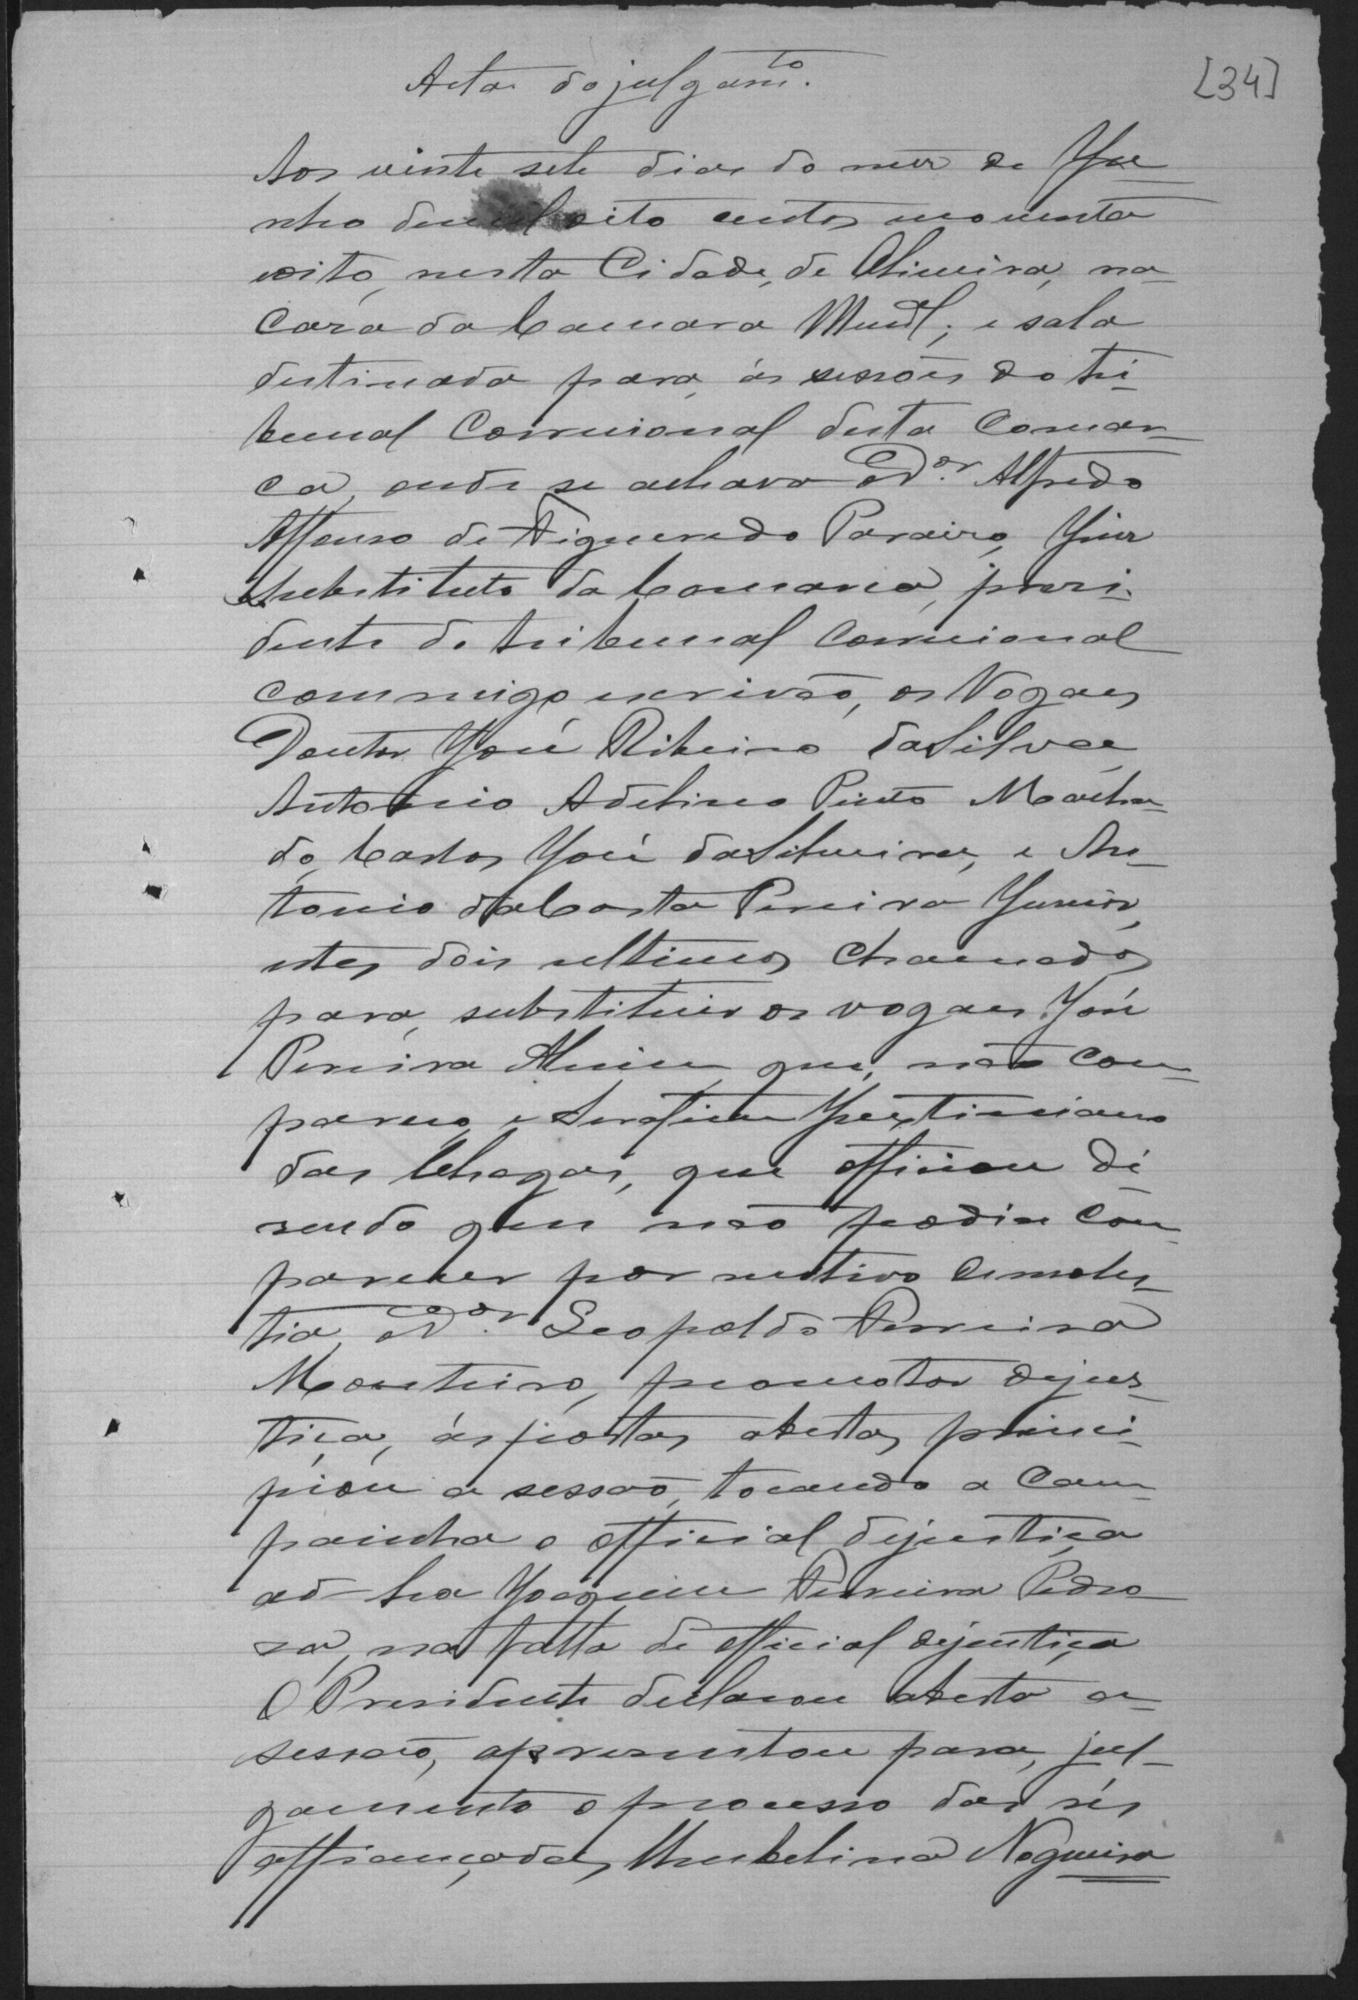 Acta do julgam.to
[34]
Aos vinte sete dias do mez de Ju-
nho de mil oito centos noventa
oito, nesta Cidade, de Oliveira, na
Caza da Camara Munl, e sala
destinada para, ás sessões do tri-
bunal Correcional desta Comar-
ca, onde se achava o Dor. Alfredo
Affonso de Figueredo Paraizo, Juiz
Substituto da Comarca, prezi-
dente do tribunal Correcional
commigo escrivão, os Vogaes
Doutor José Ribeiro da Silva e
Antonio Adelino Pinto Macha-
do, Carlos José da Silveira, e An-
tonio da Costa Pereira Junior,
estes dois ultimos chamados
para, substituir os vogaes José
Pereira que, não com-
pareceo, e Serafim Justiniano
das Chagas, que officiou di-
sendo que não podia com-
parecer por motivo de moles-
tia, o Dor. Leopoldo Ferreira
Monteiro, promotor de jus-
tiça, ás portas abertas, princi-
piou a sessão, tocando a cam-
painha o official de justiça
ad-hoc Joaquim Ferreira Pedro-
za, na falta de official de justiça
O Presidente declarou aberta a
sessão, apresentou para, jul-
gamento o processo das rés
affiançadas, Umbelina Nogueira